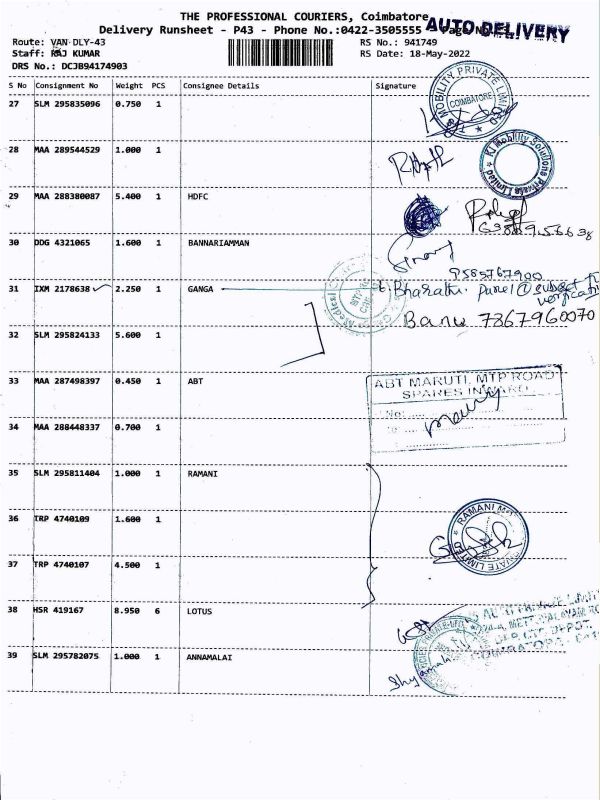 THE PROFESSIONAL COURIERS, Coimbatore
AUTO DELIVERY
Delivery Runsheet - P43 - Phone No.:0422-3505555 - Page No.
Route: VAN DLY-43
RS No.: 941749
Staff: RAJ KUMAR
RS Date: 18-May-2022
DRS No.: DCJB94174903
S No Consignment No Weight PCS Consignee Details Signature
27 SLM 295835096 0.750 1
MOBILITY PRIVATE LIMITED
COIMBATORE
28 MAA 289544529 1.000 1
KJ Mobility Solutions Private Limited
29 MAA 288380087 5.400 1 HDFC
30 DDG 4321065 1.600 1 BANNARIAMMAN
9585767900
31 IXM 2178638 2.250 1 GANGA
Bharathi
Banu 7867960070
32 SLM 295824133 5.600 1
33 MAA 287498397 0.450 1 ABT
ABT MARUTI, MTP ROAD
SPARES INWARD
34 MAA 288448337 0.700 1
35 SLM 295811404 1.000 1 RAMANI
36 TRP 4740109 1.600 1
RAMANI
PRIVATE LIMITED
37 TRP 4740107 4.500 1
38 HSR 419167 8.950 6 LOTUS
39 SLM 295782075 1.000 1 ANNAMALAI